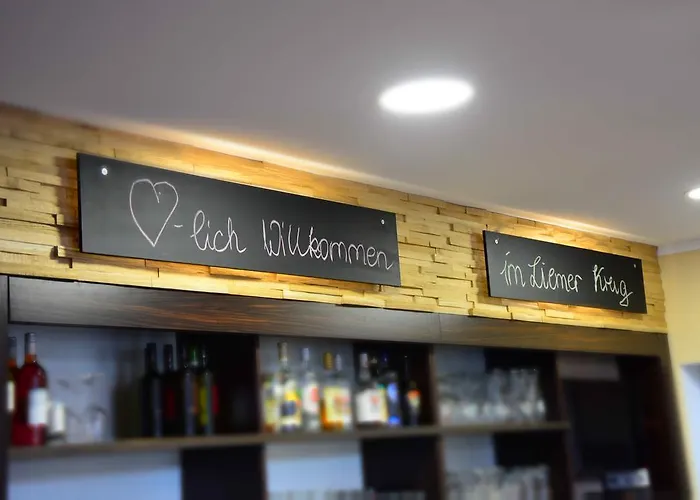 ♡-lich Willkommen
im Liemer Krug